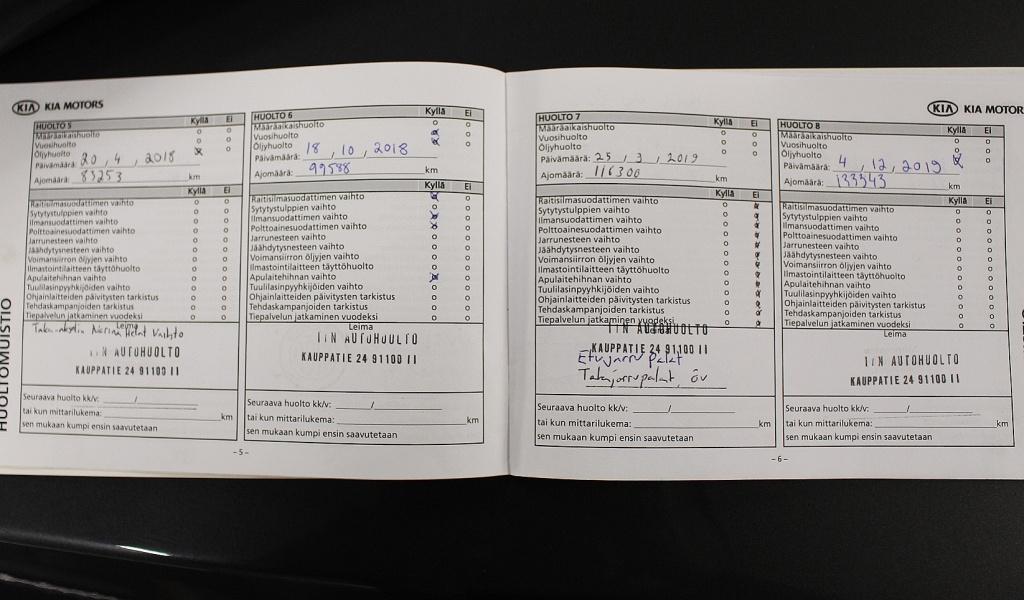 KIA KIA MOTORS
HUOLTO 5 Kyllä Ei
Määräaikaishuolto
Vuosihuolto
Öljyhuolto
Päivämäärä: 20, 4, 2018
Ajomäärä: 83253 km
Kyllä Ei
Raitisilmasuodattimen vaihto
Sytytystulppien vaihto
Ilmansuodattimen vaihto
Polttoainesuodattimen vaihto
Jarrunesteen vaihto
Jäähdytysnesteen vaihto
Voimansiirron öljyjen vaihto
Ilmastointilaitteen täyttöhuolto
Apulaitehihnan vaihto
Tuulilasinpyyhkijöiden vaihto
Ohjainlaitteiden päivitysten tarkistus
Tehdaskampanjoiden tarkistus
Tiepalvelun jatkaminen vuodeksi
Leima
Vaihto
AUTOHUOLTO
KAUPPATIE 24 91100 II
Seuraava huolto kk/v: /
tai kun mittarilukema: km
sen mukaan kumpi ensin saavutetaan
HUOLTO 6 Kyllä Ei
Määräaikaishuolto
Vuosihuolto
Öljyhuolto
Päivämäärä: 18, 10, 2018
Ajomäärä: 99588 km
Kyllä Ei
Raitisilmasuodattimen vaihto
Sytytystulppien vaihto
Ilmansuodattimen vaihto
Polttoainesuodattimen vaihto
Jarrunesteen vaihto
Jäähdytysnesteen vaihto
Voimansiirron öljyjen vaihto
Ilmastointilaitteen täyttöhuolto
Apulaitehihnan vaihto
Tuulilasinpyyhkijöiden vaihto
Ohjainlaitteiden päivitysten tarkistus
Tehdaskampanjoiden tarkistus
Tiepalvelun jatkaminen vuodeksi
Leima
IIN AUTOHUOLTO
KAUPPATIE 24 91100 II
Seuraava huolto kk/v: /
tai kun mittarilukema: km
sen mukaan kumpi ensin saavutetaan
HUOLTOMUISTIO
-5-
KIA KIA MOTOR
HUOLTO 7 Kyllä Ei
Määräaikaishuolto
Vuosihuolto
Öljyhuolto
Päivämäärä: 25, 3, 2019
Ajomäärä: 116300 km
Kyllä Ei
Raitisilmasuodattimen vaihto
Sytytystulppien vaihto
Ilmansuodattimen vaihto
Polttoainesuodattimen vaihto
Jarrunesteen vaihto
Jäähdytysnesteen vaihto
Voimansiirron öljyjen vaihto
Ilmastointilaitteen täyttöhuolto
Apulaitehihnan vaihto
Tuulilasinpyyhkijöiden vaihto
Ohjainlaitteiden päivitysten tarkistus
Tehdaskampanjoiden tarkistus
Tiepalvelun jatkaminen vuodeksi
IIN AUTOHUOLTO
KAUPPATIE 24 91100 II
Etujarru palat
Takajarrupalat, öv
Seuraava huolto kk/v: /
tai kun mittarilukema: km
sen mukaan kumpi ensin saavutetaan
HUOLTO 8 Kyllä Ei
Määräaikaishuolto
Vuosihuolto
Öljyhuolto
Päivämäärä: 4, 12, 2019
Ajomäärä: 133543 km
Kyllä Ei
Raitisilmasuodattimen vaihto
Sytytystulppien vaihto
Ilmansuodattimen vaihto
Polttoainesuodattimen vaihto
Jarrunesteen vaihto
Jäähdytysnesteen vaihto
Voimansiirron öljyjen vaihto
Ilmastointilaitteen täyttöhuolto
Apulaitehihnan vaihto
Tuulilasinpyyhkijöiden vaihto
Ohjainlaitteiden päivitysten tarkistus
Tehdaskampanjoiden tarkistus
Tiepalvelun jatkaminen vuodeksi
Leima
IIN AUTOHUOLTO
KAUPPATIE 24 91100 II
Seuraava huolto kk/v: /
tai kun mittarilukema: km
sen mukaan kumpi ensin saavutetaan
-6-